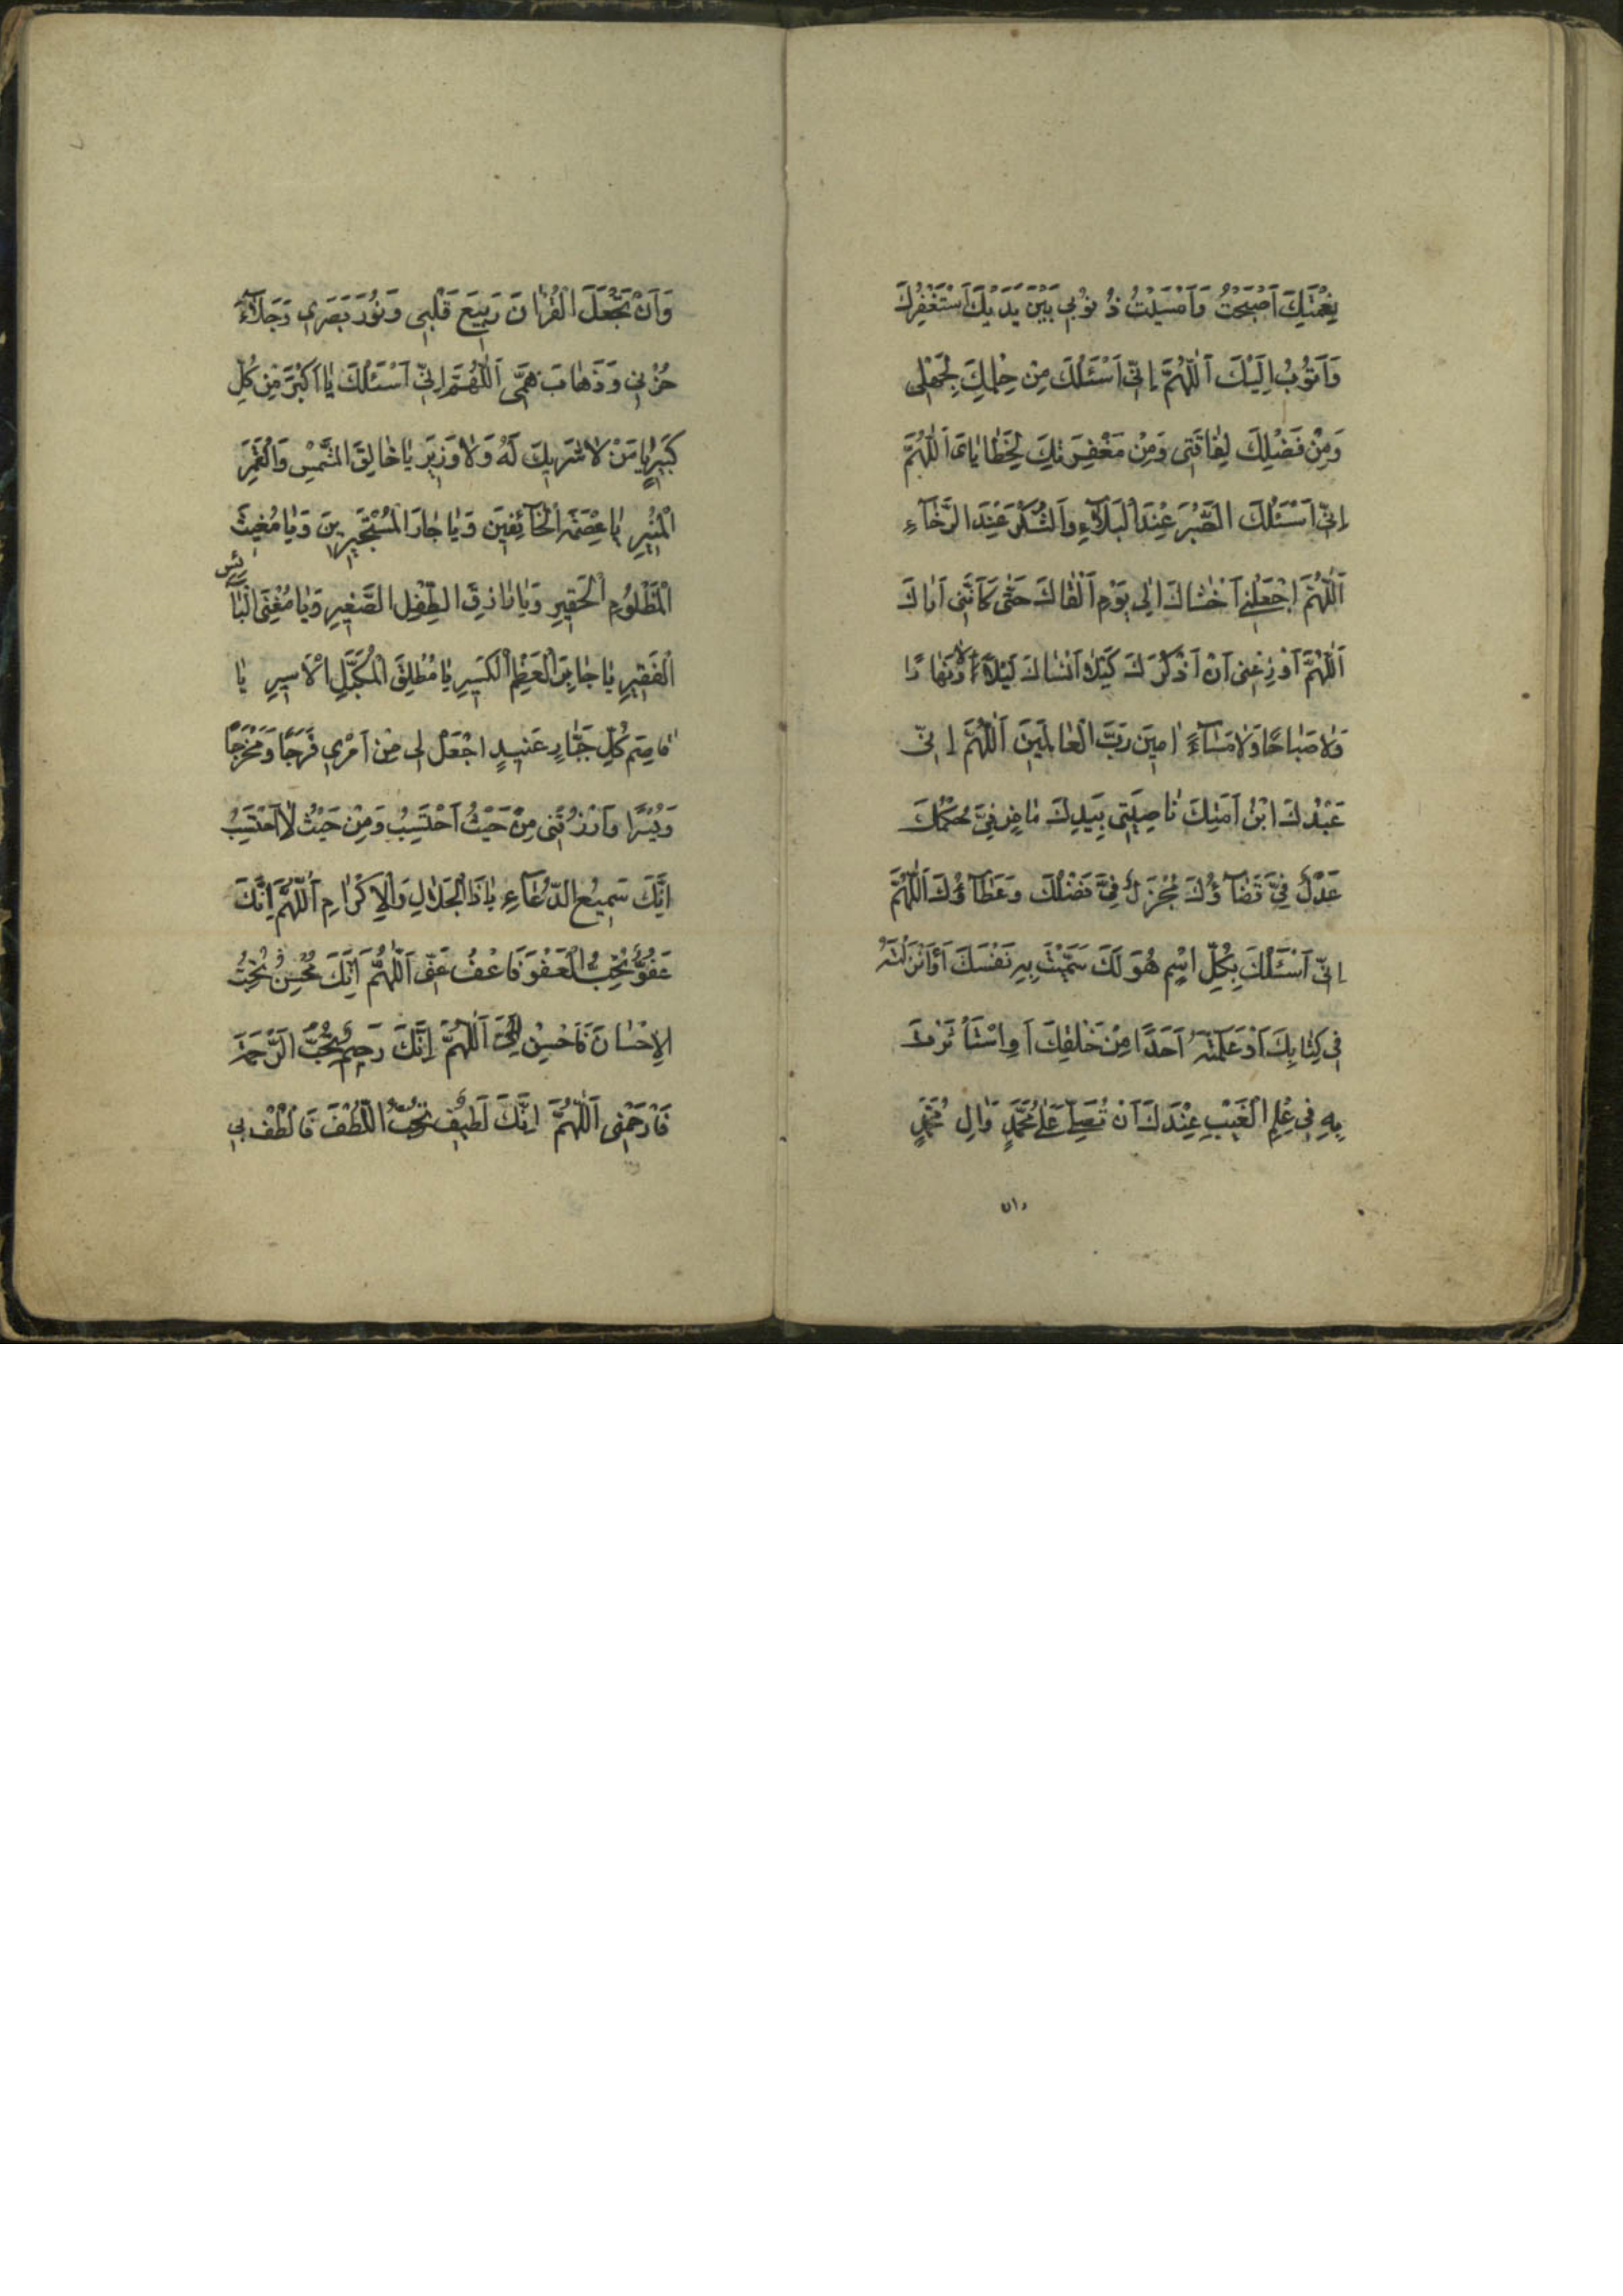 بِنِعْمَتِكَ اَصْبَحْتُ وَاَمْسَيْتُ ذُنُوْبِي بَيْنَ يَدَيْكَ اَسْتَغْفِرُكَ
وَاَتُوْبُ اِلَيْكَ اَللّٰهُمَّ اِنّي اَسْئَلُكَ مِنْ حِلْمِكَ لِجَهْلِى
وَمِنْ فَضْلِكَ لِفٰاقَتِى وَمِنْ مَغْفِرَتِكَ لِخَطٰايٰاىَ اَللّٰهُمَّ
اِنّي اَسْئَلُكَ الصَّبْرَ عِنْدَ الْبَلَآءِ وَالشُّكْرَ عِنْدَ الرَّخَآءِ
اَللّٰهُمَّ اجْعَلْنِي اَخْشٰاكَ اِلٰى يَوْمِ اَلْقٰاكَ حَتّٰى كَاَنَّنِى اَرٰاكَ
اَللّٰهُمَّ اَوْزِعْنِى اَنْ اَذْكُرَكَ كَيْلٰا اَنْسٰاكَ لَيْلًا وَلٰا نَهٰارًا
وَلٰا صَبٰاحًا وَلٰا مَسَآءً اٰمِيْنَ رَبَّ الْعٰالَمِيْنَ اَللّٰهُمَّ اِنّي
عَبْدُكَ ابْنُ اَمَتِكَ نٰاصِيَتِى بِيَدِكَ مٰاضٍ فِيَّ حُكْمُكَ
عَدْلٌ فِيَّ قَضَآؤُكَ مُجْزِلٌ فِيَّ فَضْلُكَ وَعَطَآؤُكَ اَللّٰهُمَّ
اِنّي اَسْئَلُكَ بِكُلِّ اسْمٍ هُوَ لَكَ سَمَّيْتَ بِهِ نَفْسَكَ اَوْ اَنْزَلْتَهُ
فِى كِتٰابِكَ اَوْ عَلَّمْتَهُ اَحَدًا مِنْ خَلْقِكَ اَوِ اسْتَأْثَرْتَ
بِهِ فِى عِلْمِ الْغَيْبِ عِنْدَكَ اَنْ تُصَلِّيَ عَلٰى مُحَمَّدٍ وَاٰلِ مُحَمَّدٍ
وان
وَاَنْ تَجْعَلَ الْقُرْاٰنَ رَبِيْعَ قَلْبِى وَنُوْرَ بَصَرِي وَجَلَآءَ
حُزْنِى وَذَهٰابَ هَمِّى اَللّٰهُمَّ اِنّي اَسْئَلُكَ يٰا اَكْبَرَ مِنْ كُلِّ
كَبِيْرٍ يٰا مَنْ لٰا شَرِيْكَ لَهُ وَلٰا وَزِيْرَ يٰا خٰالِقَ الشَّمْسِ وَالْقَمَرِ
الْمُنِيْرِ يٰا عِصْمَةَ الْخَآئِفِيْنَ وَيٰا جٰارَ الْمُسْتَجِيْرِيْنَ وَيٰا مُغِيْثَ
الْمَظْلُوْمِ الْحَقِيْرِ وَيٰا رٰازِقَ الطِّفْلِ الصَّغِيْرِ وَيٰا مُغْنِيَ الْبَآئِسِ
الْفَقِيْرِ يٰا جٰابِرَ الْعَظْمِ الْكَسِيْرِ يٰا مُطْلِقَ الْمُكَبَّلِ الْاَسِيْرِ يٰا
قٰاصِمَ كُلِّ جَبّٰارٍ عَنِيْدٍ اجْعَلْ لِى مِنْ اَمْرِي فَرَجًا وَمَخْرَجًا
وَيُسْرًا وَارْزُقْنِى مِنْ حَيْثُ اَحْتَسِبُ وَمِنْ حَيْثُ لٰا اَحْتَسِبُ
اِنَّكَ سَمِيْعُ الدُّعَآءِ يٰا ذَا الْجَلٰالِ وَالْاِكْرٰامِ اَللّٰهُمَّ اِنَّكَ
عَفُوٌّ تُحِبُّ الْعَفْوَ فَاعْفُ عَنّي اَللّٰهُمَّ اِنَّكَ مُحْسِنٌ تُحِبُّ
الْاِحْسٰانَ فَاَحْسِنْ اِلَيَّ اَللّٰهُمَّ اِنَّكَ رَحِيْمٌ تُحِبُّ الرَّحْمَةَ
فَارْحَمْنِى اَللّٰهُمَّ اِنَّكَ لَطِيْفٌ تُحِبُّ اللُّطْفَ فَالْطُفْ بِي